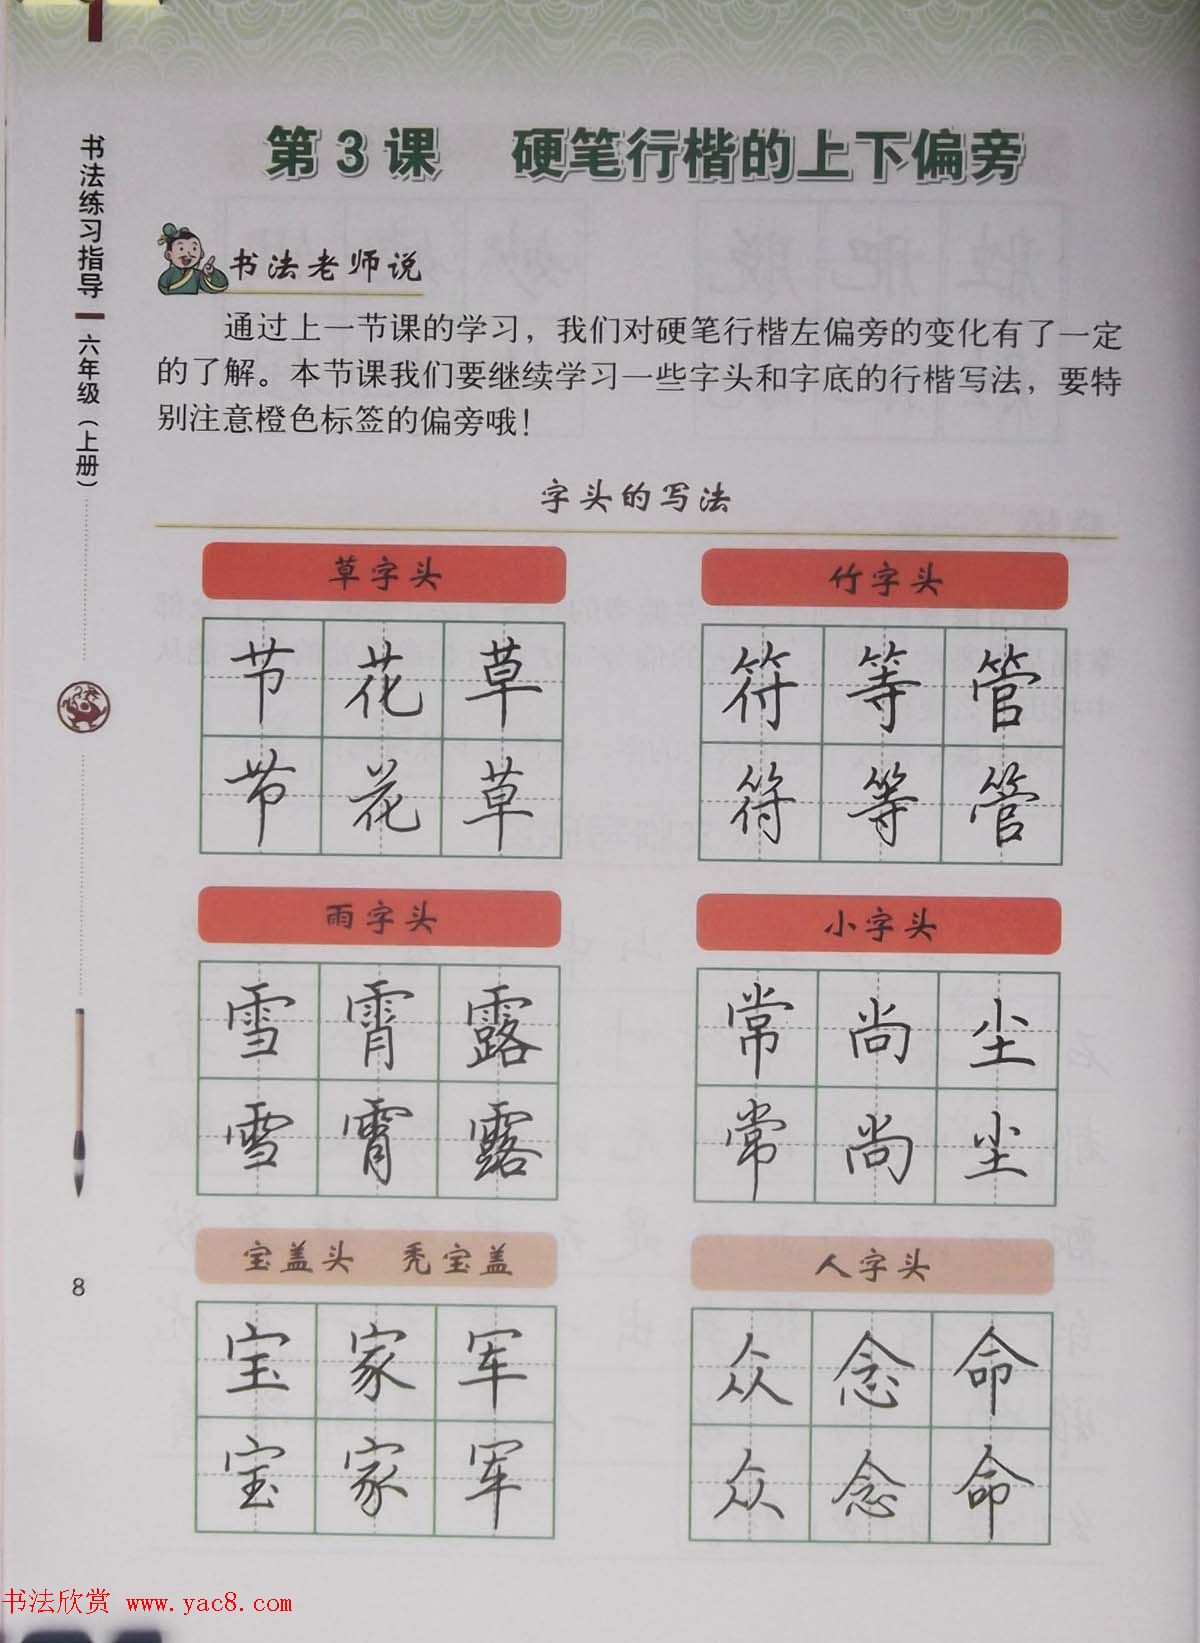 书法练习指导 六年级（上册）
第3课 硬笔行楷的上下偏旁
书法老师说
通过上一节课的学习，我们对硬笔行楷左偏旁的变化有了一定
的了解。本节课我们要继续学习一些字头和字底的行楷写法，要特
别注意橙色标签的偏旁哦！
字头的写法
草字头
节 花 草
节 花 草
竹字头
符 等 管
符 等 管
雨字头
雪 霄 露
雪 霄 露
小字头
常 尚 尘
常 尚 尘
宝盖头 秃宝盖
宝 家 军
宝 家 军
人字头
众 念 命
众 念 命
8
书法欣赏 www.yac8.com